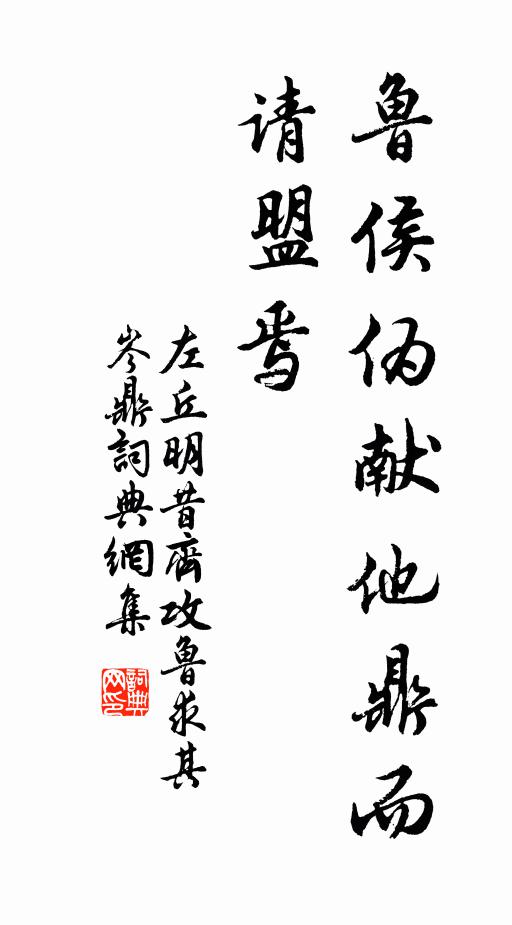 鲁侯伪献他鼎而
请盟焉
左丘明昔齊攻魯求其
岑鼎詞典網集
詞典网印